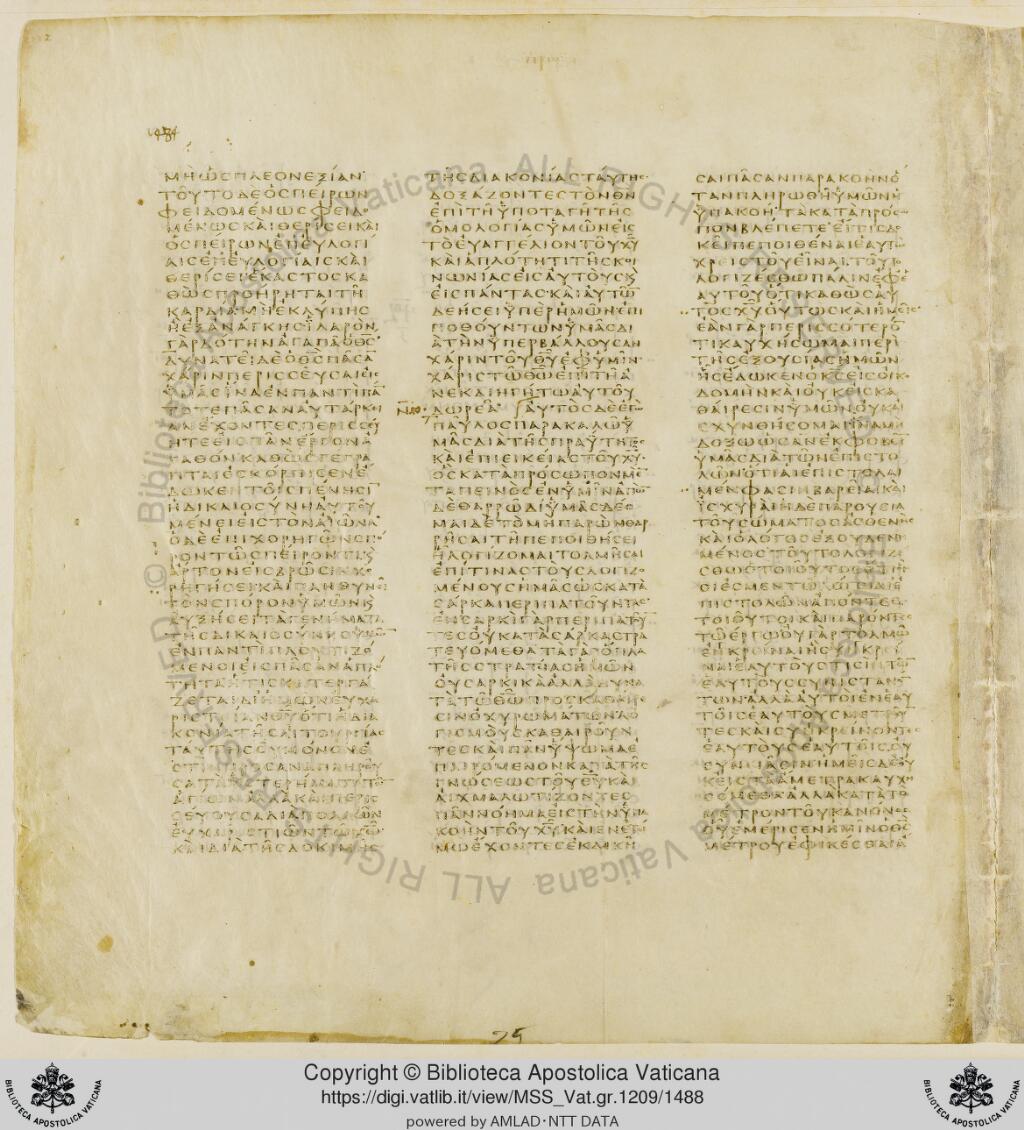 ΜΗΩΣΠΛΕΟΝΕΞΙΑΝ
ΤΟΥΤΟΔΕΟΣΠΕΙΡΩΝ
ΦΕΙΔΟΜΕΝΩΣΦΕΙΔΟ
ΜΕΝΩΣΚΑΙΘΕΡΙΣΕΙΚΑΙ
ΟΣΠΕΙΡΩΝΕΠΕΥΛΟΓΙ
ΑΙΣΕΠΕΥΛΟΓΙΑΙΣΚΑΙ
ΘΕΡΙΣΕΙΕΚΑΣΤΟΣΚΑ
ΘΩΣΠΡΟΗΡΗΤΑΙΤΗ
ΚΑΡΔΙΑΜΗΕΚΛΥΠΗΣ
ΗΕΞΑΝΑΓΚΗΣΙΛΑΡΟΝ
ΓΑΡΔΟΤΗΝΑΓΑΠΑΟΘΣ
ΔΥΝΑΤΕΙΔΕΟΘΣΠΑΣΑ
ΧΑΡΙΝΠΕΡΙΣΣΕΥΣΑΙΕΙΣ
ΥΜΑΣΙΝΑΕΝΠΑΝΤΙΠΑ
ΤΟΤΕΠΑΣΑΝΑΥΤΑΡΚΙ
ΑΝΕΧΟΝΤΕΣΠΕΡΙΣΣΕΥ
ΗΤΕΕΙΣΠΑΝΕΡΓΟΝΑ
ΓΑΘΟΝΚΑΘΩΣΓΕΓΡΑ
ΠΤΑΙΕΣΚΟΡΠΙΣΕΝΕ
ΔΩΚΕΝΤΟΙΣΠΕΝΗΣΙ
ΗΔΙΚΑΙΟΣΥΝΗΑΥΤΟΥ
ΜΕΝΕΙΕΙΣΤΟΝΑΙΩΝΑ
ΟΔΕΕΠΙΧΟΡΗΓΩΝΣΠΟ
ΡΟΝΤΩΣΠΕΙΡΟΝΤΙΚΑΙ
ΑΡΤΟΝΕΙΣΒΡΩΣΙΝΧΟ
ΡΗΓΗΣΕΙΚΑΙΠΛΗΘΥΝΕΙ
ΤΟΝΣΠΟΡΟΝΥΜΩΝΚΑΙ
ΑΥΞΗΣΕΙΤΑΓΕΝΗΜΑΤΑ
ΤΗΣΔΙΚΑΙΟΣΥΝΗΣΥΜΩ
ΕΝΠΑΝΤΙΠΛΟΥΤΙΖΟ
ΜΕΝΟΙΕΙΣΠΑΣΑΝΑΠΛΟ
ΤΗΤΑΗΤΙΣΚΑΤΕΡΓΑ
ΖΕΤΑΙΔΙΗΜΩΝΕΥΧΑ
ΡΙΣΤΙΑΝΘΥΟΤΙΗΔΙΑ
ΚΟΝΙΑΤΗΣΛΙΤΟΥΡΓΙΑΣ
ΤΑΥΤΗΣΟΥΜΟΝΟΝΕ
ΣΤΙΠΡΟΣΑΝΑΠΛΗΡΟΥ
ΣΑΤΑΥΣΤΕΡΗΜΑΤΑΤΩ
ΑΓΙΩΝΑΛΛΑΚΑΙΠΕΡΙΣ
ΣΕΥΟΥΣΑΔΙΑΠΟΛΛΩΝ
ΕΥΧΑΡΙΣΤΙΩΝΤΩΧΩ
ΚΑΙΔΙΑΤΗΣΔΟΚΙΜΗΣ
ΤΗΣΔΙΑΚΟΝΙΑΣΤΑΥΤΗΣ
ΔΟΞΑΖΟΝΤΕΣΤΟΝΘΝ
ΕΠΙΤΗΥΠΟΤΑΓΗΤΗΣ
ΟΜΟΛΟΓΙΑΣΥΜΩΝΕΙΣ
ΤΟΕΥΑΓΓΕΛΙΟΝΤΟΥΧΥ
ΚΑΙΑΠΛΟΤΗΤΙΤΗΣΚΟΙ
ΝΩΝΙΑΣΕΙΣΑΥΤΟΥΣΚΑΙ
ΕΙΣΠΑΝΤΑΣΚΑΙΑΥΤΩ
ΔΕΗΣΕΙΥΠΕΡΗΜΩΝΕΠΙ
ΠΟΘΟΥΝΤΩΝΥΜΑΣΔΙ
ΑΤΗΝΥΠΕΡΒΑΛΛΟΥΣΑΝ
ΧΑΡΙΝΤΟΥΘΥΕΦΥΜΙΝ
ΧΑΡΙΣΤΩΘΩΕΠΙΤΗΑ
ΝΕΚΔΙΗΓΗΤΩΑΥΤΟΥ
ΔΩΡΕΑ ΑΥΤΟΣΔΕΕΓΩ
ΠΑΥΛΟΣΠΑΡΑΚΑΛΩΥ
ΜΑΣΔΙΑΤΗΣΠΡΑΥΤΗΤΟΣ
ΚΑΙΕΠΙΕΙΚΕΙΑΣΤΟΥΧΥ
ΟΣΚΑΤΑΠΡΟΣΩΠΟΝΜΕ
ΤΑΠΕΙΝΟΣΕΝΥΜΙΝΑΠΩ
ΔΕΘΑΡΡΩΔΙΥΜΑΣΔΕΟ
ΜΑΙΔΕΤΟΜΗΠΑΡΩΝΘΑΡ
ΡΗΣΑΙΤΗΠΕΠΟΙΘΗΣΕΙ
ΗΛΟΓΙΖΟΜΑΙΤΟΛΜΗΣΑΙ
ΕΠΙΤΙΝΑΣΤΟΥΣΛΟΓΙΖΟ
ΜΕΝΟΥΣΗΜΑΣΩΣΚΑΤΑ
ΣΑΡΚΑΠΕΡΙΠΑΤΟΥΝΤΑΣ
ΕΝΣΑΡΚΙΓΑΡΠΕΡΙΠΑΤΟΥ
ΤΕΣΟΥΚΑΤΑΣΑΡΚΑΣΤΡΑ
ΤΕΥΟΜΕΘΑΤΑΓΑΡΟΠΛΑ
ΤΗΣΣΤΡΑΤΙΑΣΗΜΩΝ
ΟΥΣΑΡΚΙΚΑΑΛΛΑΔΥΝΑ
ΤΑΤΩΘΩΠΡΟΣΚΑΘΑΙΡΕ
ΣΙΝΟΧΥΡΩΜΑΤΩΝΛΟ
ΓΙΣΜΟΥΣΚΑΘΑΙΡΟΥΝ
ΤΕΣΚΑΙΠΑΝΥΨΩΜΑΕ
ΠΑΙΡΟΜΕΝΟΝΚΑΤΑΤΗΣ
ΓΝΩΣΕΩΣΤΟΥΘΥΚΑΙ
ΑΙΧΜΑΛΩΤΙΖΟΝΤΕΣ
ΠΑΝΝΟΗΜΑΕΙΣΤΗΝΥΠΑ
ΚΟΗΝΤΟΥΧΥΚΑΙΕΝΕΤΟΙ
ΜΩΕΧΟΝΤΕΣΕΚΔΙΚΗ
ΣΑΙΠΑΣΑΝΠΑΡΑΚΟΗΝΟ
ΤΑΝΠΛΗΡΩΘΗΥΜΩΝΗ
ΥΠΑΚΟΗΤΑΚΑΤΑΠΡΟΣΩ
ΠΟΝΒΛΕΠΕΤΕΕΙΤΙΣΔΟ
ΚΕΙΠΕΠΟΙΘΕΝΑΙΕΑΥΤΩ
ΧΡΕΙΣΤΟΥΕΙΝΑΙΤΟΥΤΟ
ΛΟΓΙΖΕΣΘΩΠΑΛΙΝΕΦΕ
ΑΥΤΟΥΟΤΙΚΑΘΩΣΑΥ
ΤΟΣΧΥΟΥΤΩΣΚΑΙΗΜΕΙΣ
ΕΑΝΓΑΡΠΕΡΙΣΣΟΤΕΡΟ
ΤΙΚΑΥΧΗΣΩΜΑΙΠΕΡΙ
ΤΗΣΕΞΟΥΣΙΑΣΗΜΩΝ
ΗΣΕΔΩΚΕΝΟΚΣΕΙΣΟΙΚΟ
ΔΟΜΗΝΚΑΙΟΥΚΕΙΣΚΑ
ΘΑΙΡΕΣΙΝΥΜΩΝΟΥΚΑΙ
ΣΧΥΝΘΗΣΟΜΑΙΙΝΑΜΗ
ΔΟΞΩΩΣΑΝΕΚΦΟΒΕΙ
ΥΜΑΣΔΙΑΤΩΝΕΠΙΣΤΟ
ΛΩΝΟΤΙΑΙΕΠΙΣΤΟΛΑΙ
ΜΕΝΦΑΣΙΝΒΑΡΕΙΑΙΚΑΙ
ΙΣΧΥΡΑΙΗΔΕΠΑΡΟΥΣΙΑ
ΤΟΥΣΩΜΑΤΟΣΑΣΘΕΝΗΣ
ΚΑΙΟΛΟΓΟΣΕΞΟΥΔΕΝΗ
ΜΕΝΟΣΤΟΥΤΟΛΟΓΙΖΕ
ΣΘΩΟΤΟΙΟΥΤΟΣΟΤΙΟΙ
ΟΙΕΣΜΕΝΤΩΛΟΓΩΔΙΕ
ΠΙΣΤΟΛΩΝΑΠΟΝΤΕΣ
ΤΟΙΟΥΤΟΙΚΑΙΠΑΡΟΝΤΕΣ
ΤΩΕΡΓΩΟΥΓΑΡΤΟΛΜΩ
ΕΝΚΡΕΙΝΑΙΗΣΥΓΚΡΕΙ
ΝΑΙΕΑΥΤΟΥΣΤΙΣΙΝΤΩ
ΕΑΥΤΟΥΣΣΥΝΙΣΤΑΝ
ΤΩΝΑΛΛΑΑΥΤΟΙΕΝΕΑΥ
ΤΟΙΣΕΑΥΤΟΥΣΜΕΤΡΟΥ
ΤΕΣΚΑΙΣΥΓΚΡΕΙΝΟΝΤΕΣ
ΕΑΥΤΟΥΣΕΑΥΤΟΙΣΟΥ
ΣΥΝΙΑΣΙΝΗΜΕΙΣΔΕΟΥ
ΚΕΙΣΤΑΑΜΕΤΡΑΚΑΥΧΗ
ΣΟΜΕΘΑΑΛΛΑΚΑΤΑΤΟ
ΜΕΤΡΟΝΤΟΥΚΑΝΟΝΟΣ
ΟΥΕΜΕΡΙΣΕΝΗΜΙΝΟΘΣ
ΜΕΤΡΟΥΕΦΙΚΕΣΘΑΙΑ
25
Copyright © Biblioteca Apostolica Vaticana
https://digi.vatlib.it/view/MSS_Vat.gr.1209/1488
powered by AMLAD·NTT DATA